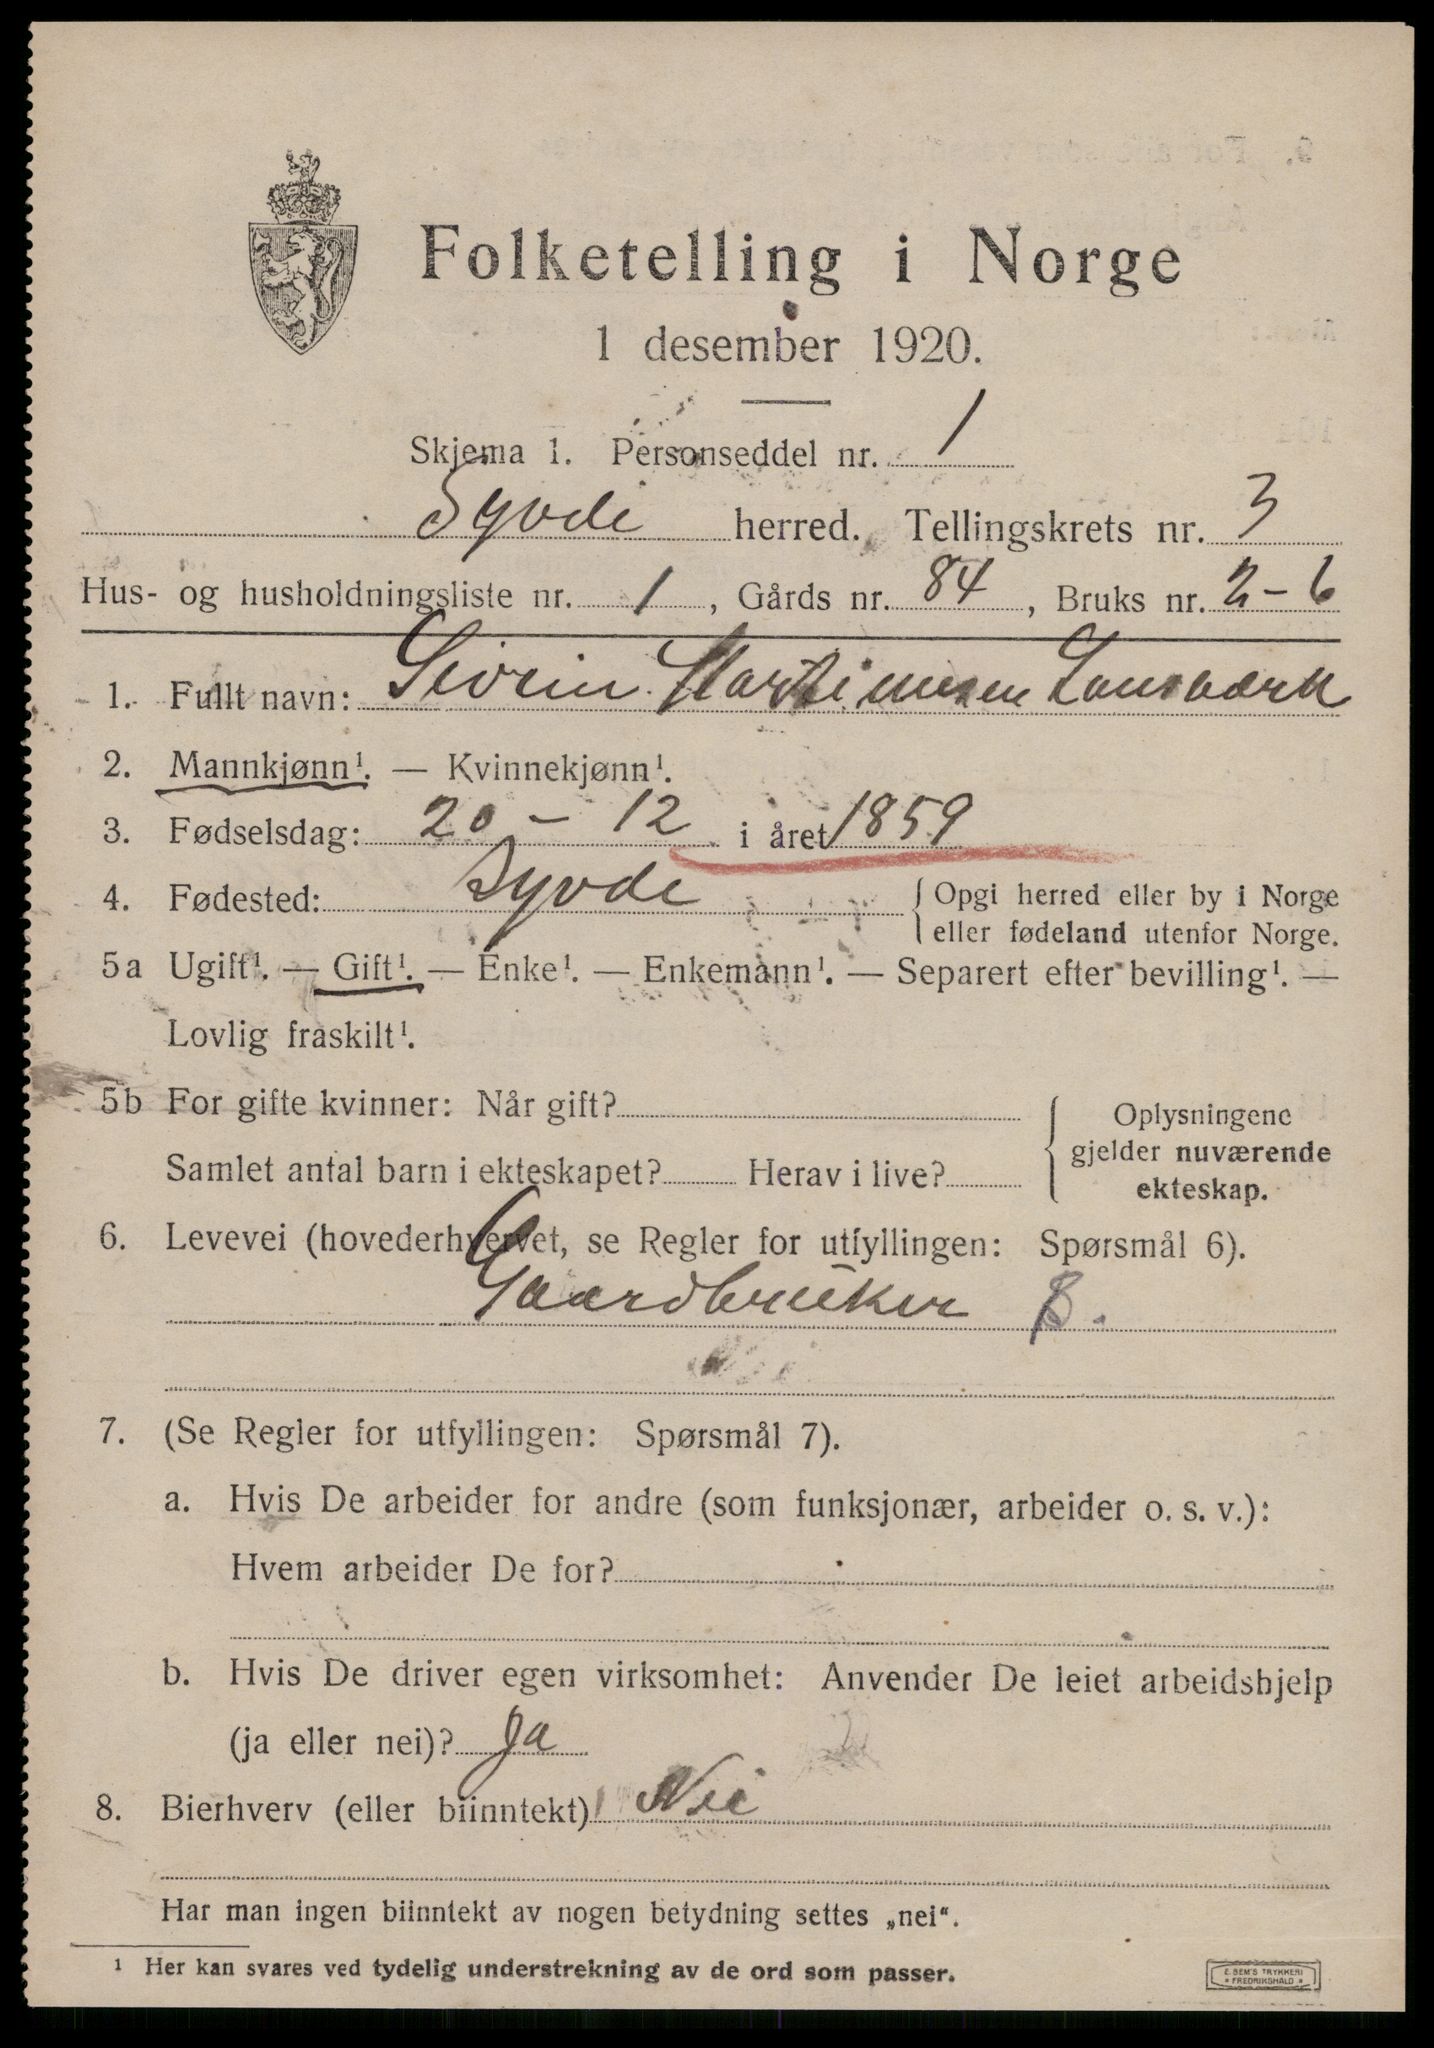 Folketelling i Norge
1 desember 1920.
Skjema 1. Personseddel nr. 1
Syvde herred. Tellingskrets nr. 3
Hus- og husholdningsliste nr. 1, Gårds nr. 84, Bruks nr. 2-6
1. Fullt navn: Sivein Martinusen
2. Mannkjønn¹. — Kvinnekjønn¹.
3. Fødselsdag: 20 - 12 i året 1859
4. Fødested: Syvde { Opgi herred eller by i Norge
eller fødeland utenfor Norge.
5a Ugift¹. — Gift¹. — Enke¹. — Enkemann¹. — Separert efter bevilling¹. —
Lovlig fraskilt¹.
5b For gifte kvinner: Når gift?
Samlet antal barn i ekteskapet? Herav i live?
Oplysningene
gjelder nuværende
ekteskap.
6. Levevei (hovederhvervet, se Regler for utfyllingen: Spørsmål 6).
Gaardbruker B.
7. (Se Regler for utfyllingen: Spørsmål 7).
a. Hvis De arbeider for andre (som funksjonær, arbeider o. s. v.):
Hvem arbeider De for?
b. Hvis De driver egen virksomhet: Anvender De leiet arbeidshjelp
(ja eller nei)? Ja
8. Bierhverv (eller biinntekt) Nei
Har man ingen biinntekt av nogen betydning settes „nei“.
¹ Her kan svares ved tydelig understrekning av de ord som passer.
E. SEM'S TRYKKERI
FREDRIKSHALD